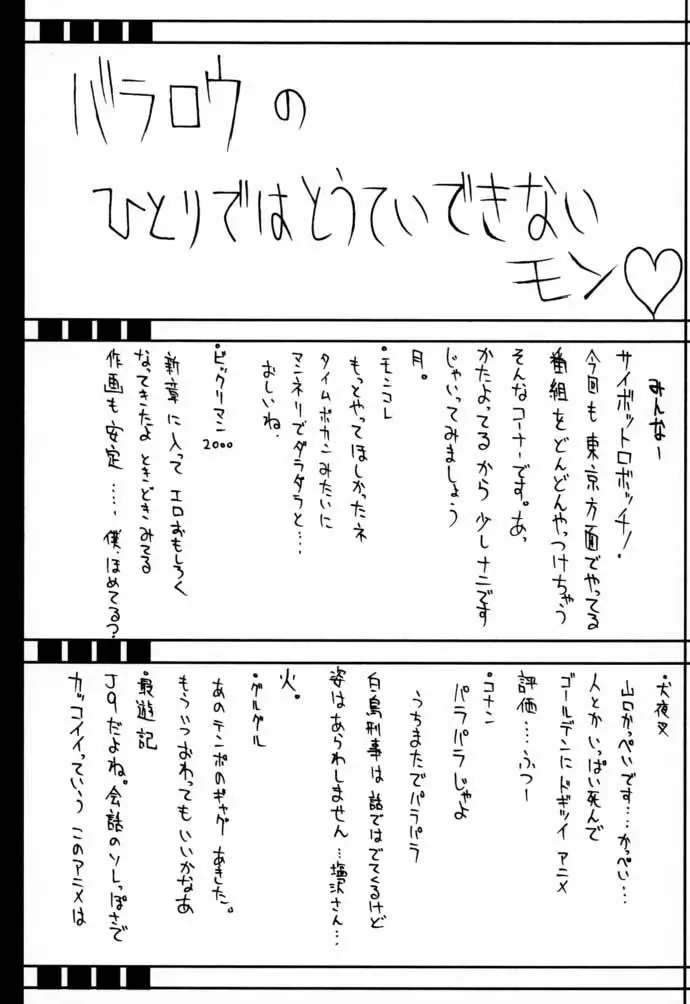 バラロウの
ひとりではとうていできない
モン♡
みんなー
サイボットロボッチ！
今回も東京方面でやってる
番組をどんどんやっつけちゃう
そんなコーナーです。あっ
かたよってるから少しナニです
じゃいってみましょう
月。
・モンコレ
もっとやってほしかったネ
タイムボカンみたいに
マンネリでダラダラと…
おしいね.
・ビックリマン2000
新章に入ってエロおもしろく
なってきたよときどきみてる
作画も安定……僕、ほめてる?
・犬夜叉
山口かっぺいです…かっぺい…
人とかいっぱい死んで
ゴールデンにドギツイアニメ
評価……ふつー
・コナン
パラパラじゃよ
うちまたでパラパラ
白鳥刑事は話ではでてくるけど
姿はあらわしません…塩沢さん…
火。
・グルグル
あのテンポのギャグあきた。
もういつおわってもいいかなあ
・最遊記
J9だよね。会話のソレっぽさで
カッコイイっていうこのアニメは